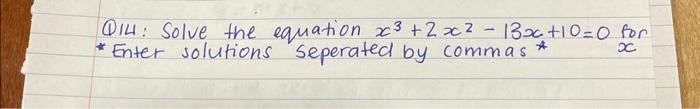 Q14: Solve the equation x³ + 2x² - 13x + 10 = 0 for x
* Enter solutions seperated by commas *